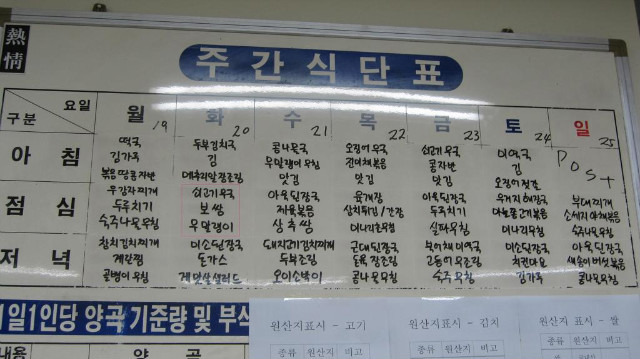 熱情
주간식단표
구분 요일 월 19 화 20 수 21 목 22 금 23 토 24 일 25
아침
떡국 두부김치국 콩나물국 오징어무국 쇠고기무국 미역국 Post
김가루 김 무말랭이무침 건어채볶음 콩자반 김
볶음땅콩자반 메추리알장조림 맛김 맛김 맛김 오징어젓갈
점심
우김라찌개 쇠고기무국 아욱된장국 육개장 아욱된장국 우거지해장국 부대찌개
두루치기 보쌈 제육볶음 삼치튀김/간장 두루치기 소세지야채볶음
숙주나물무침 무말랭이 상추쌈 미나리초무침 실파무침 미나리무침 숙주나물무침
저녁
참치김치찌개 미소된장국 돼지고기김치찌개 근대된장국 북어채미역국 미소된장국 아욱된장국
계란찜 돈가스 두부조림 돈육장조림 고등어무조림 치킨다요 새송이버섯볶음
골뱅이무침 게맛살샐러드 오이소박이 콩나물무침 숙주무침 김가루 콩나물무침
1일1인당 양곡 기준량 및 부식
내용 양곡
원산지표시 - 고기 원산지표시 - 김치 원산지표시 - 쌀
종류 원산지 비고 종류 원산지 비고 종류 원산지 비고